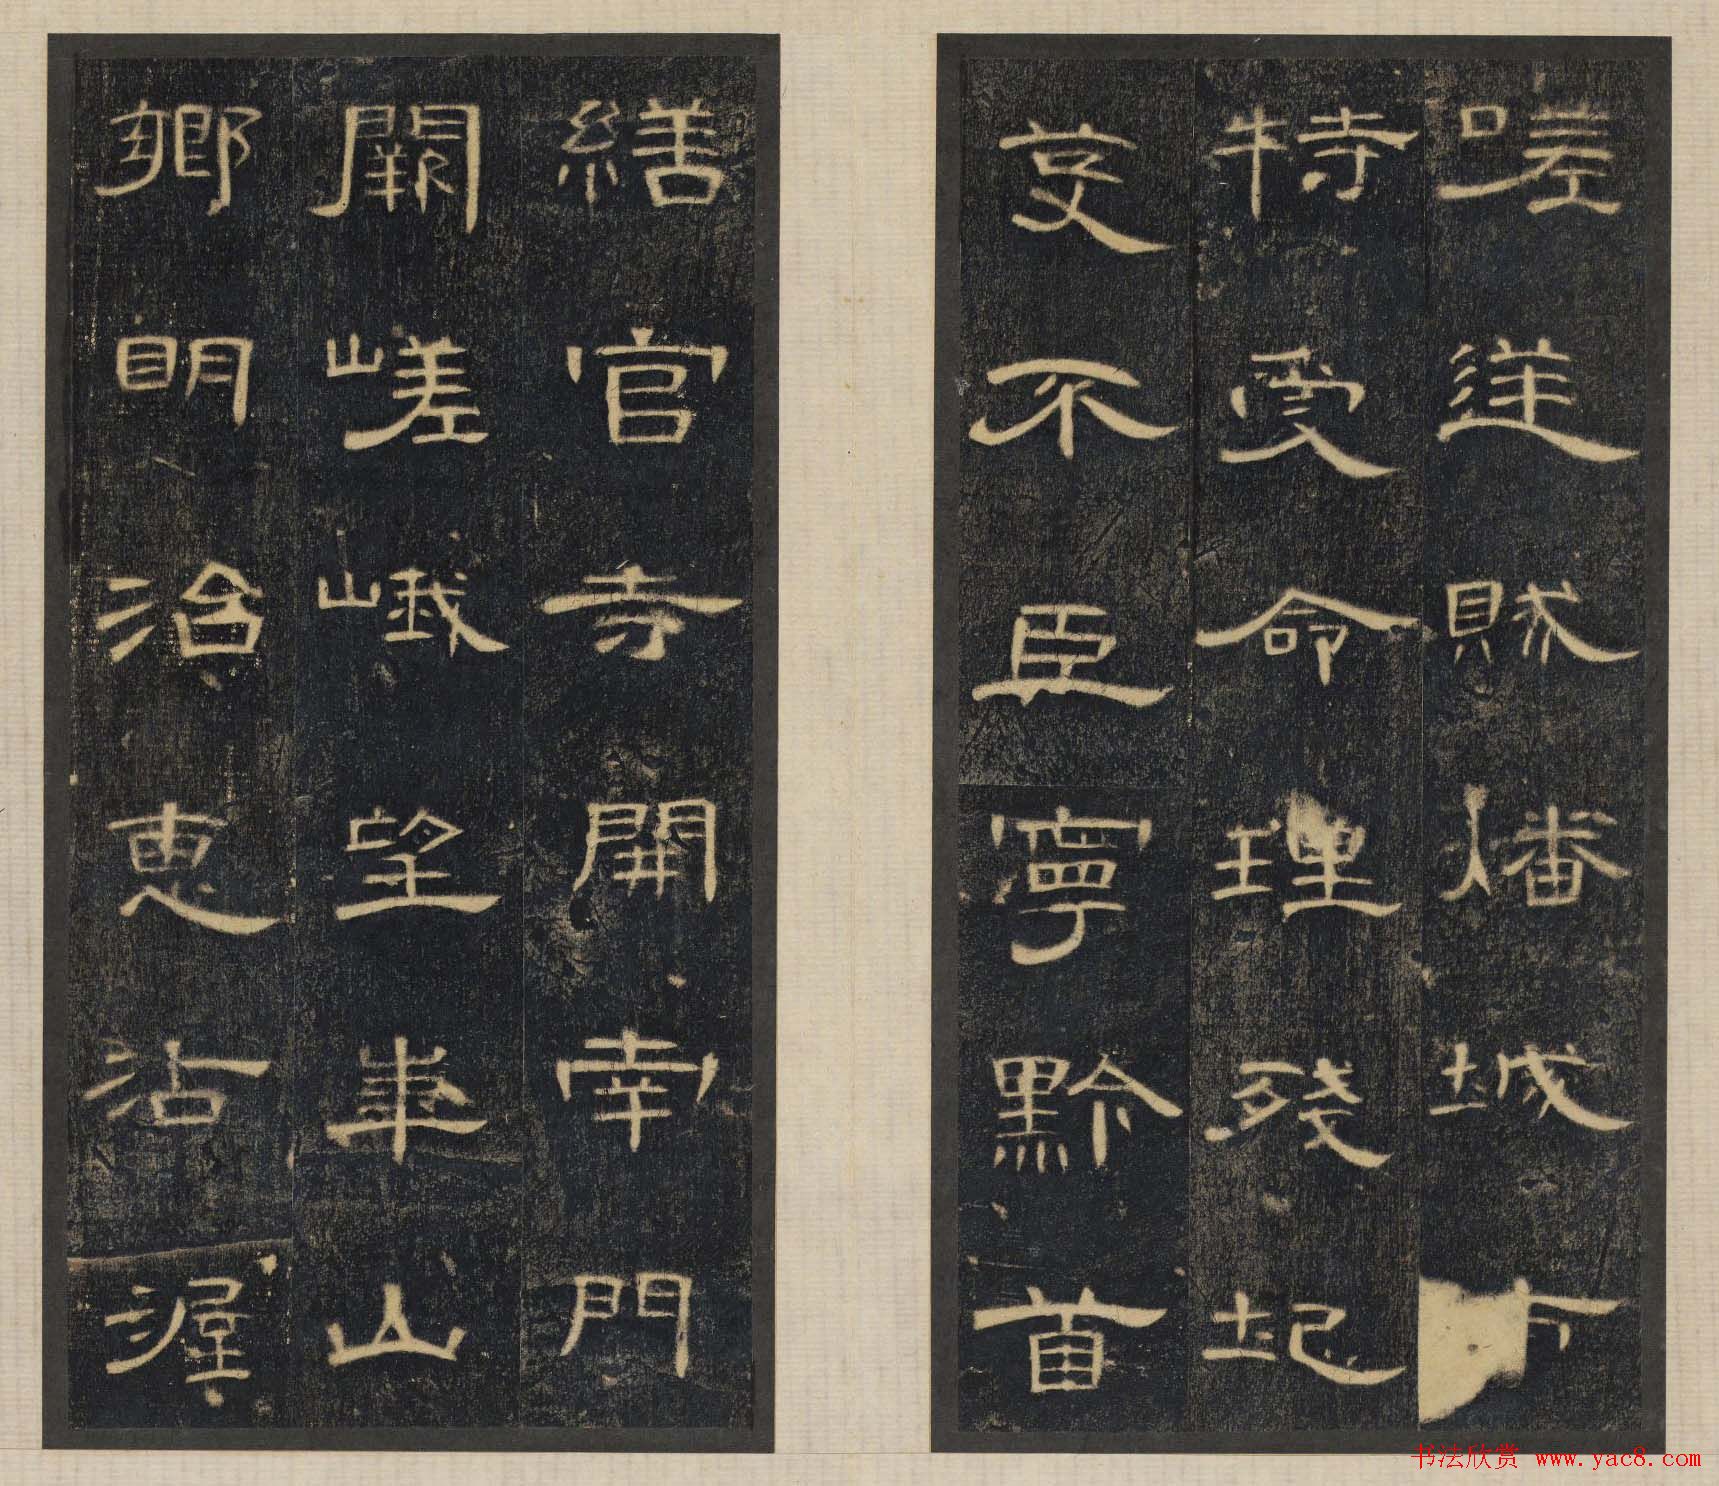 嗟逆賊燔城
特受命理殘圮
芟不臣寧黔首
繕官寺開南門
闕嵯峨望華山
鄉明治惠沾渥
书法欣赏 www.yac8.com